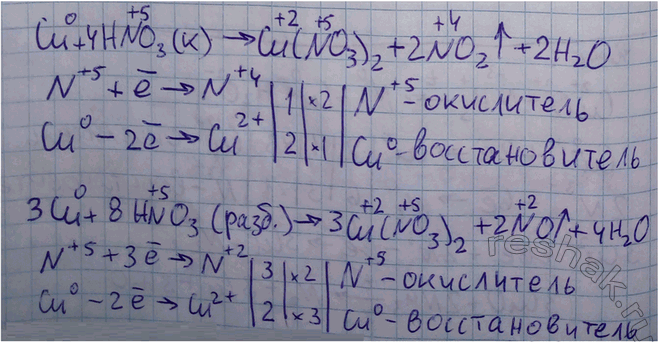 Cu⁰ + 4HN⁺⁵O₃(к) → Cu⁺²(N⁺⁵O₃)₂ + 2N⁺⁴O₂↑ + 2H₂O
N⁺⁵ + ē → N⁺⁴ | 1 | ×2 | N⁺⁵ - окислитель
Cu⁰ - 2ē → Cu²⁺ | 2 | ×1 | Cu⁰ - восстановитель
3Cu⁰ + 8HN⁺⁵O₃ (разб.) → 3Cu⁺²(N⁺⁵O₃)₂ + 2N⁺²O↑ + 4H₂O
N⁺⁵ + 3ē → N⁺² | 3 | ×2 | N⁺⁵ - окислитель
Cu⁰ - 2ē → Cu²⁺ | 2 | ×3 | Cu⁰ - восстановитель
reshak.ru